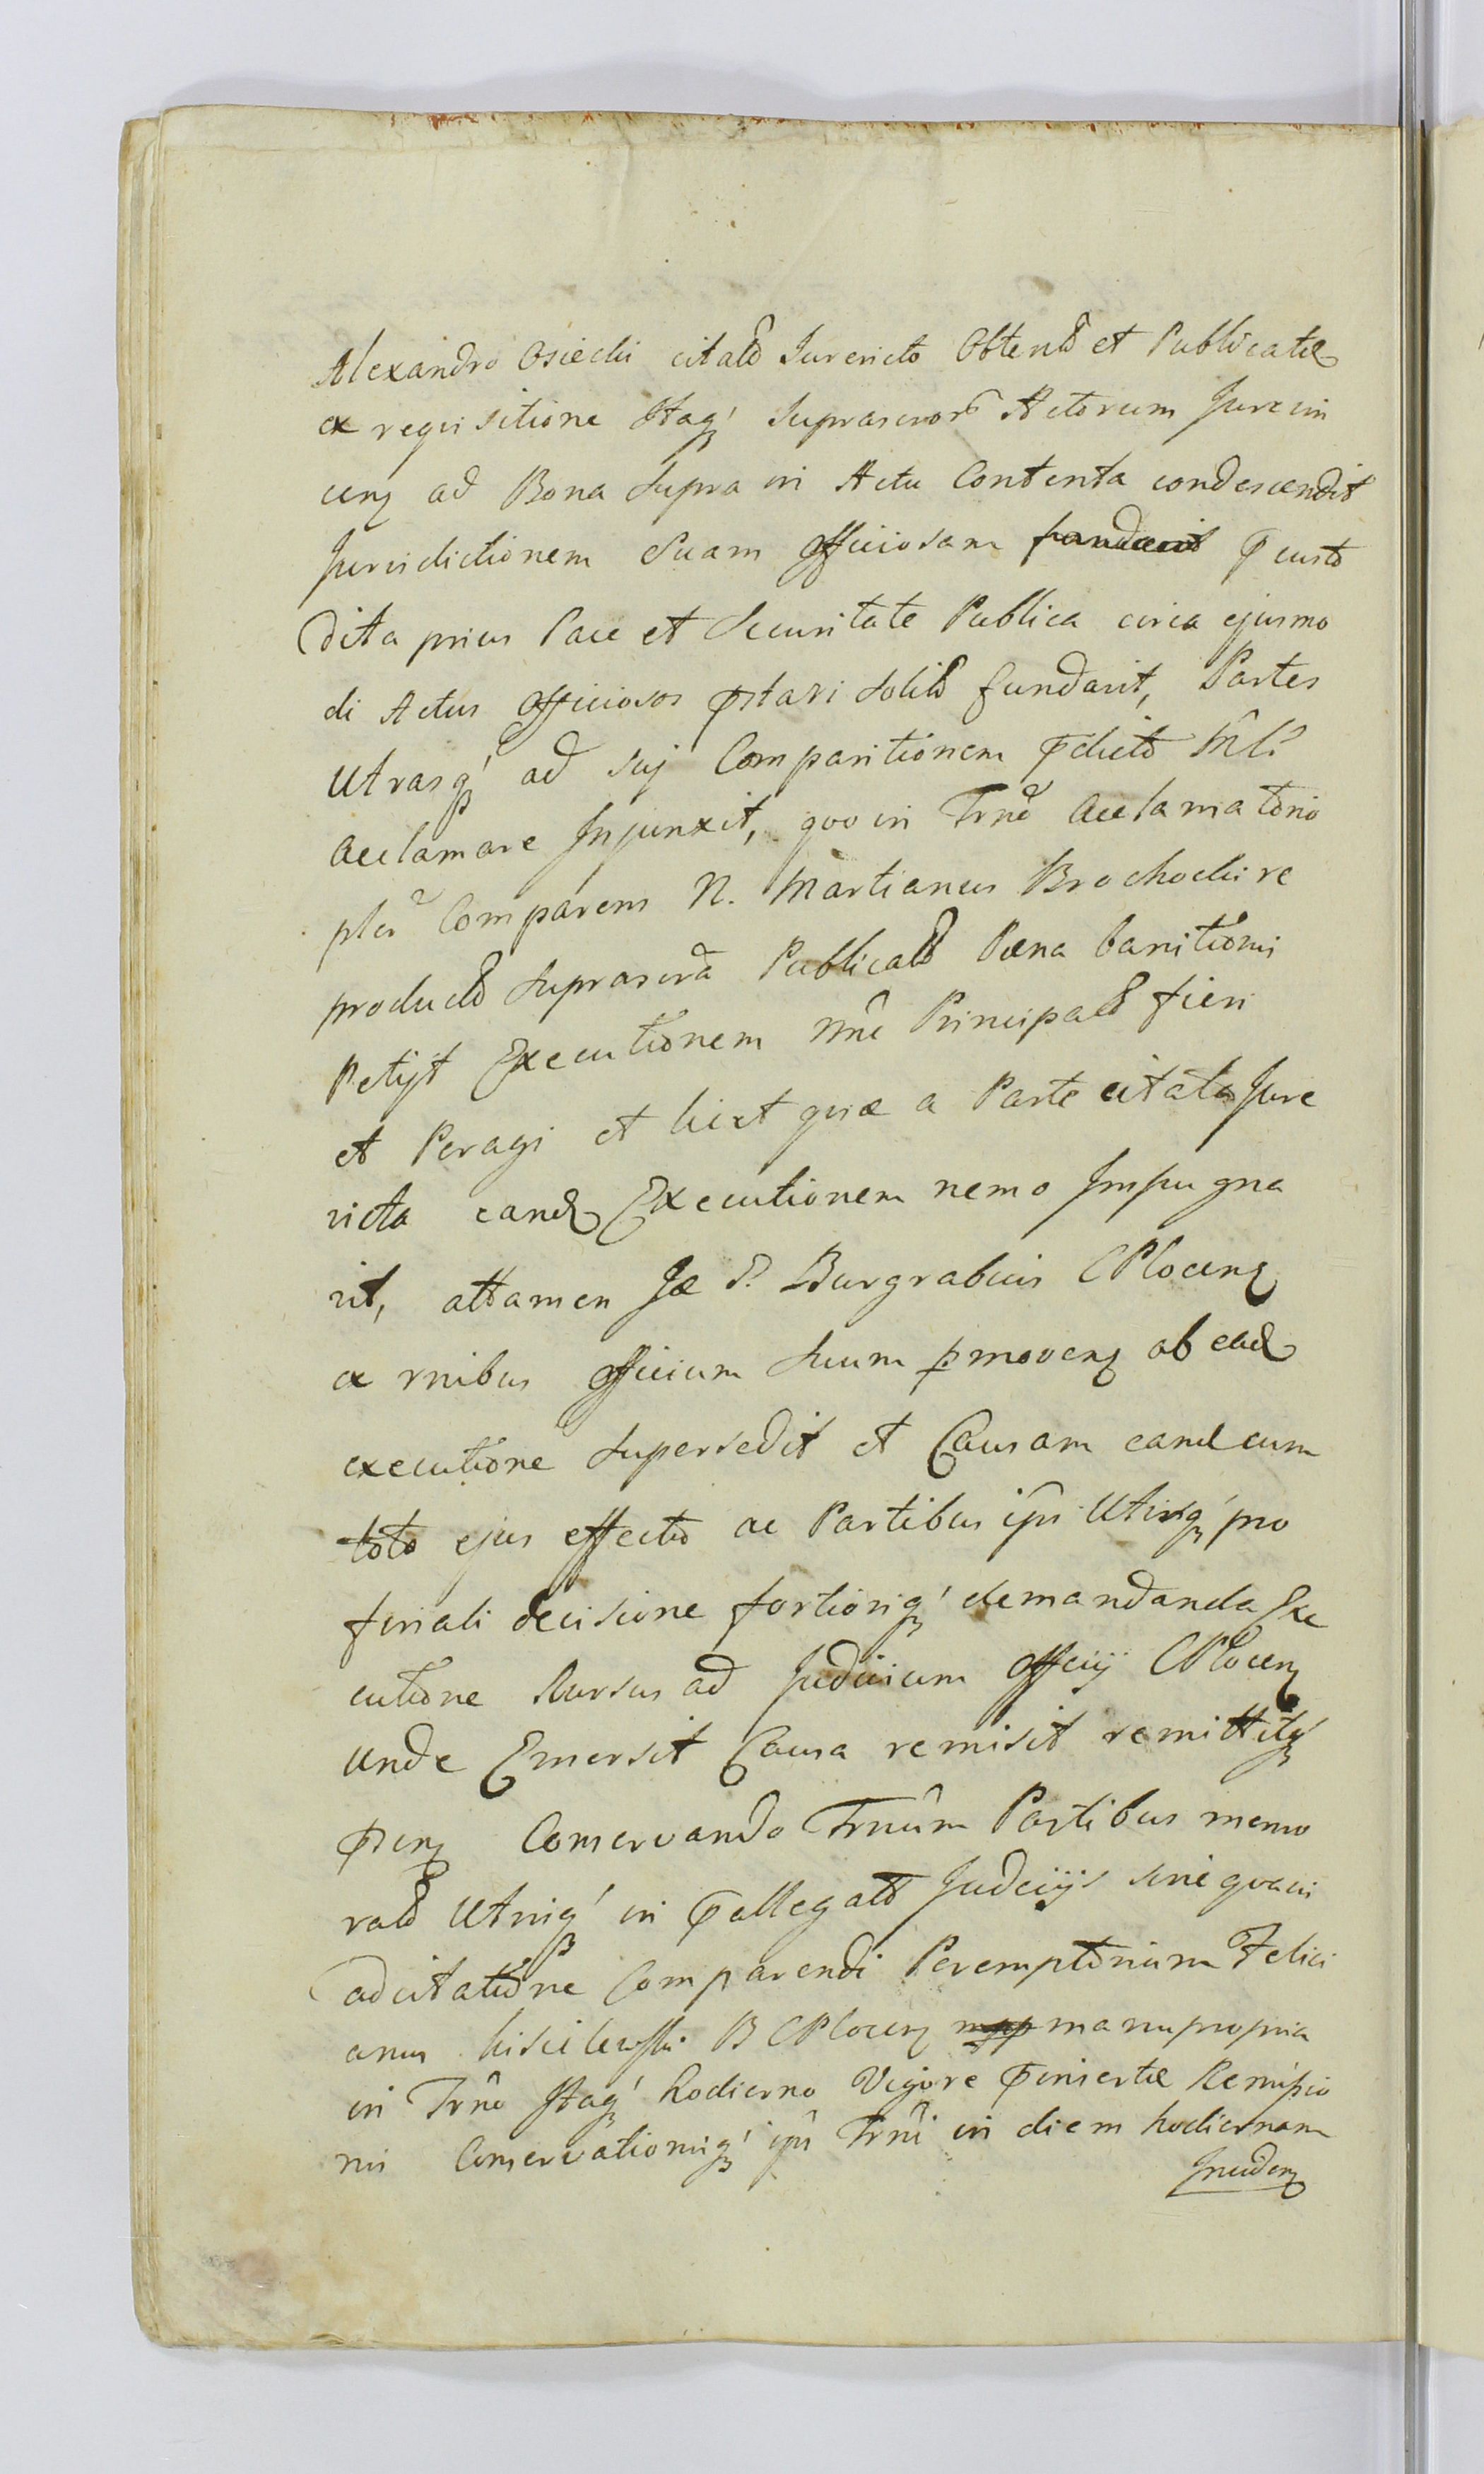 Alexandro Osiecki citato Jurevicto Obtento et Publicatæ
ex requisitione Itaq' Suprascrorũ Actorum Jurevin
cenꝫ ad Bona Supra in Actu Contenta condescendit
Jurisdictionem Suam Officiosam fundavit p̃ custo
dita prius Pace et Securitate Publica circa ejusmo
di Actus Officiosos p̃stari solito fundavit, Partes
Utrasq' ad sui Comparitionem p̃dicto Ml̃i
Acclamare Injunxit, quo in Trno Acclamatorio
plr̃ Comparens N. Martianus Brochocki re
producto Suprascrã Publicatæ Pœna banitionis
Petijt Executionem Nñe Principalũ fieri
et Peragi et licet quæ a Parte citata Jure
victa eand Executionem nemo Impugna
vit, attamen Je P. Burgrabius CPlocenꝫ
ex rnibus Officium Suum p̱movenꝫ ab ead
executione Supersedit et Causam eand cum
toto ejus effectu ac Partibus ip̃is Utrisq' pro
finali decisione fortioriq' demandanda Exe
cutione Rursus ad Judicium Officij CPlocenꝫ
unde Emersit Causa remisit remittitq'
p̃senꝫ Conservando Trnum Partibus memo
ratis Utrisq' in p̃allegatis Judicijs sine quavis
adcitatione Comparendi Peremptorium Felici
anus Kisielewski B CPlocenꝫ mpp manu propria
in Trno Itaq' hodierno Vigore p̃insertæ Remissio
nis Conservationisq' ip̃ius Trni in diem hodiernam
Incidenꝫ